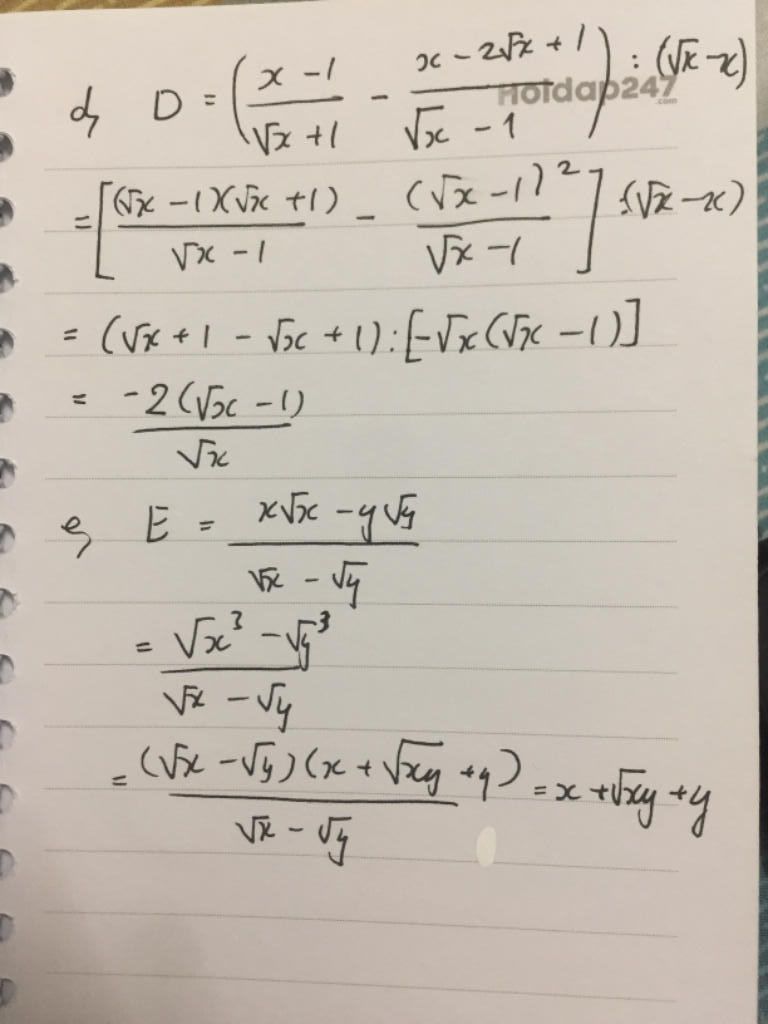 d, D = (x - 1 / √x + 1 - x - 2√x + 1 / √x - 1) : (√x - x)
Hoidap247.com
= [(√x - 1)(√x + 1) / √x - 1 - (√x - 1)² / √x - 1] : (√x - x)
= (√x + 1 - √x + 1) : [-√x(√x - 1)]
= -2(√x - 1) / √x
e, E = x√x - y√y / √x - √y
= √x³ - √y³ / √x - √y
= (√x - √y)(x + √xy + y) / √x - √y = x + √xy + y